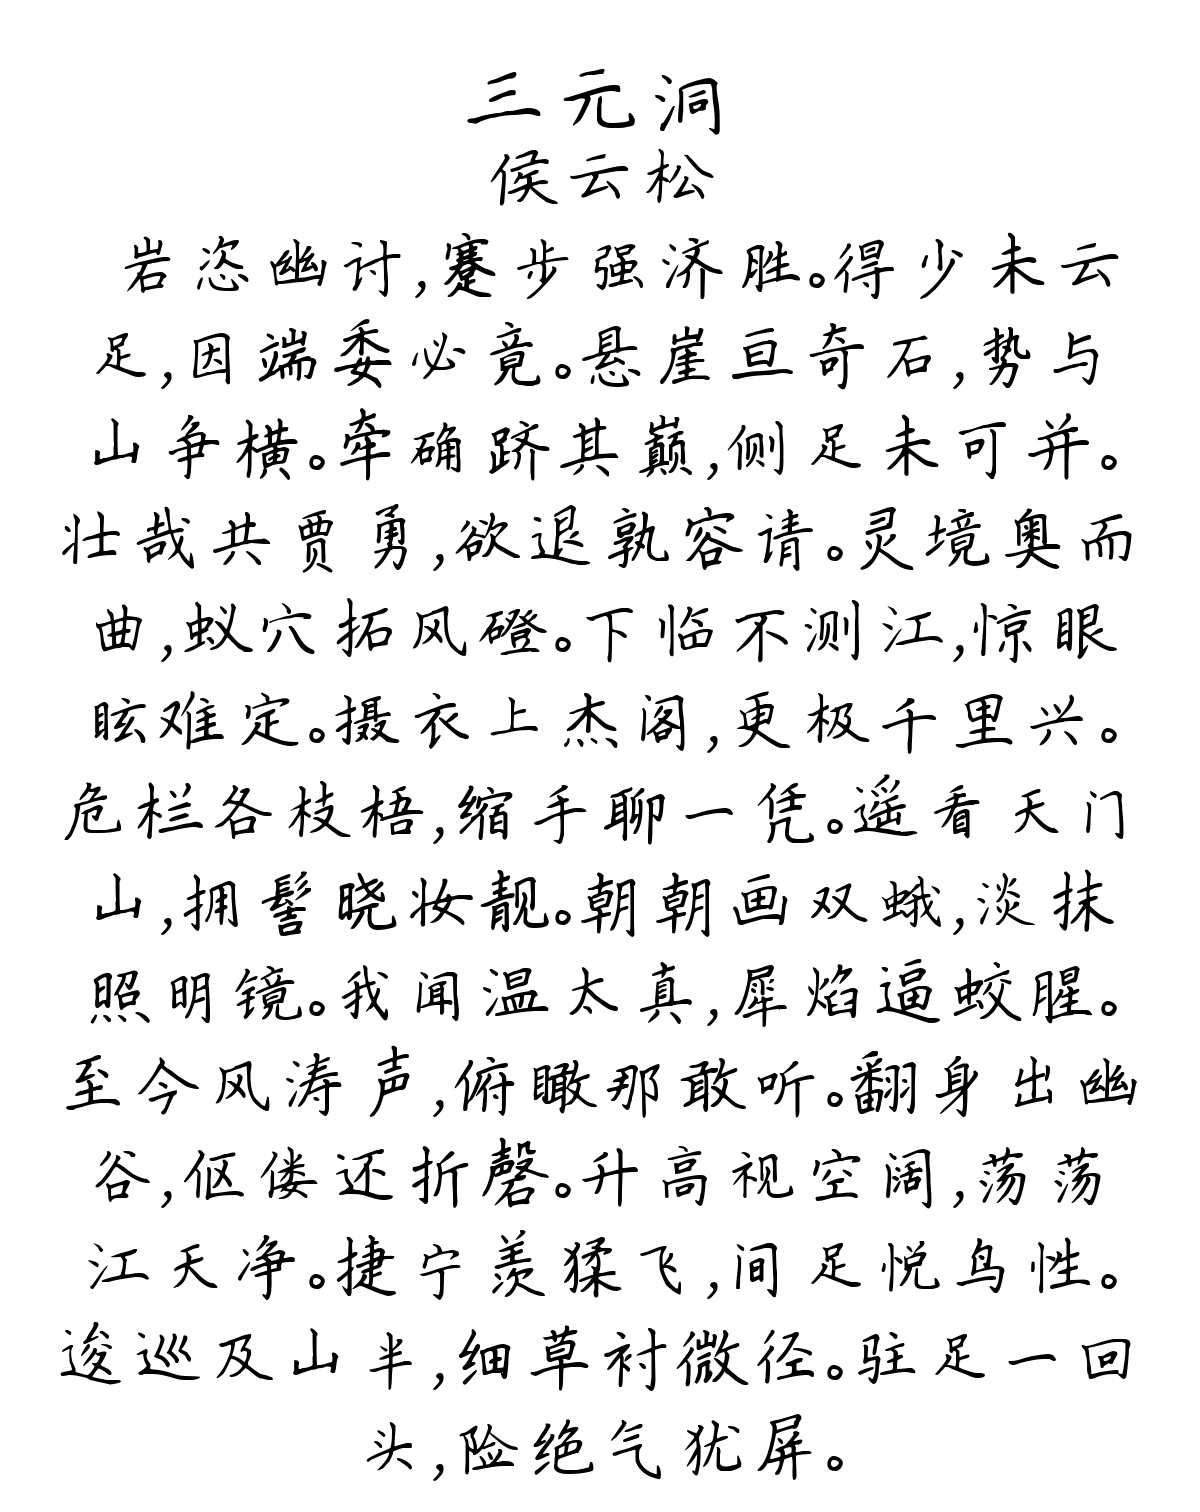 三元洞
侯云松
岩恣幽讨,蹇步强济胜。得少未云
足,因端委必竟。悬崖亘奇石,势与
山争横。牵确跻其巅,侧足未可并。
壮哉共贾勇,欲退孰容请。灵境奥而
曲,蚁穴拓风磴。下临不测江,惊眼
眩难定。摄衣上杰阁,更极千里兴。
危栏各枝梧,缩手聊一凭。遥看天门
山,拥髻晓妆靓。朝朝画双蛾,淡抹
照明镜。我闻温太真,犀焰逼蛟腥。
至今风涛声,俯瞰那敢听。翻身出幽
谷,伛偻还折磬。升高视空阔,荡荡
江天净。捷宁羡猱飞,间足悦鸟性。
逡巡及山半,细草衬微径。驻足一回
头,险绝气犹屏。